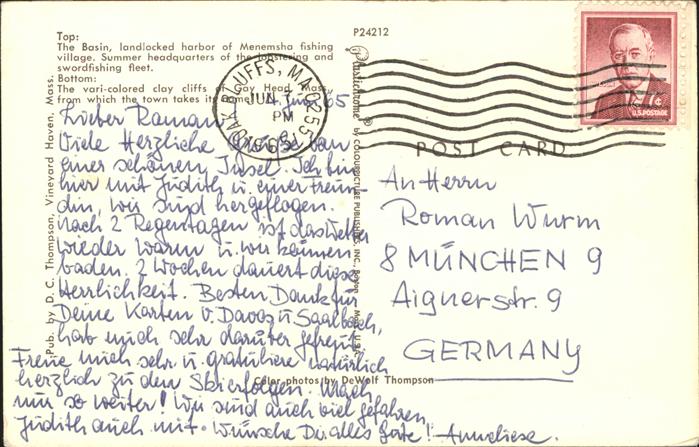 Top:
The Basin, landlocked harbor of Menemsha fishing
village. Summer headquarters of the lobstering and
swordfishing fleet.
Bottom:
The vari-colored clay cliffs of Gay Head, Mass.,
from which the town takes its name.
P24212
Plastichrome® BY COLOURPICTURE PUBLISHERS, INC., Boston, Mass. U.S.A.
Pub. by D. C. Thompson, Vineyard Haven, Mass.
OAK BLUFFS, MA 02557
JUN 7
PM
1965
7¢
U.S. POSTAGE
POST CARD
4. Juni 65
Lieber Roman!
Viele Herzliche Grüße von
einer schönen Insel. Ich bin
hier mit Judith u. einer Freun-
din, wir sind hergeflogen.
Nach 2 Regentagen ist das Wetter
wieder warm u. wir können
baden. 2 Wochen dauert diese
Herrlichkeit. Besten Dank für
Deine Karten v. Davos u. Saalbach,
hab mich sehr darüber gefreut.
Freue mich sehr u. gratuliere natürlich
herzlich zu den Skierfolgen. Mach
nur so weiter! Wir sind auch viel gefahren,
Judith auch mit. Wünsche Dir alles Gute! Anneliese.
An Herrn
Roman Wurm
8 MÜNCHEN 9
Aignerstr. 9
GERMANY
Color photos by DeWolf Thompson